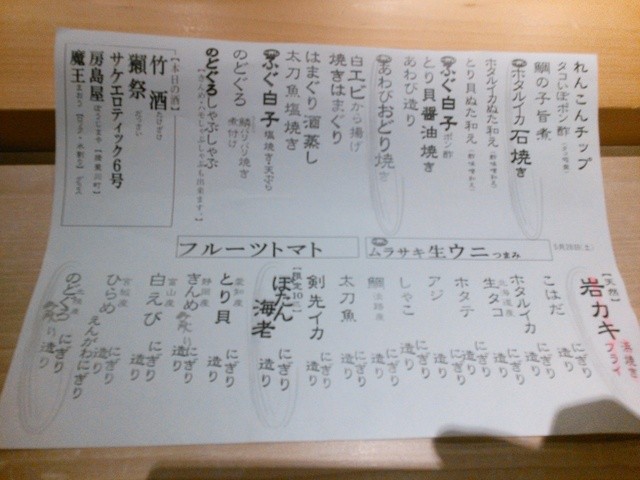 れんこんチップ
タコいぼポン酢
鯛の子旨煮
ホタルイカ石焼き
ホタルイカぬた和え(酢味噌和え)
とり貝ぬた和え(酢味噌和え)
ふぐ白子ポン酢
とり貝醤油焼き
あわび造り
あわびおどり焼き
白エビから揚げ
焼きはまぐり
はまぐり酒蒸し
太刀魚塩焼き
ふぐ白子 塩焼き・天ぷら
のどぐろ 煮付け
のどぐるしゃぶしゃぶ
【本日の酒】
竹酒 たけざけ
獺祭 だっさい
サケエロティック6号
房島屋 ぼうじまや
魔王 まおう
5月28日(土)
ムラサキ生ウニつまみ
フルーツトマト
【天然】
岩カキ 浜焼き フライ
こはだ にぎり 造り
ホタルイカ にぎり 造り
北海道産
生タコ にぎり 造り
ホタテ にぎり 造り
アジ にぎり 造り
しゃこ にぎり 造り
鯛 淡路産 にぎり 造り
太刀魚 にぎり 造り
剣先イカ にぎり 造り
【限定10】
ぼたん海老 にぎり 造り
愛知産
とり貝 にぎり 造り
静岡産
きんめ にぎり 造り
富山産
白えび にぎり 造り
宮城産
ひらめ にぎり 造り
えんがわにぎり
のどぐろ にぎり 造り